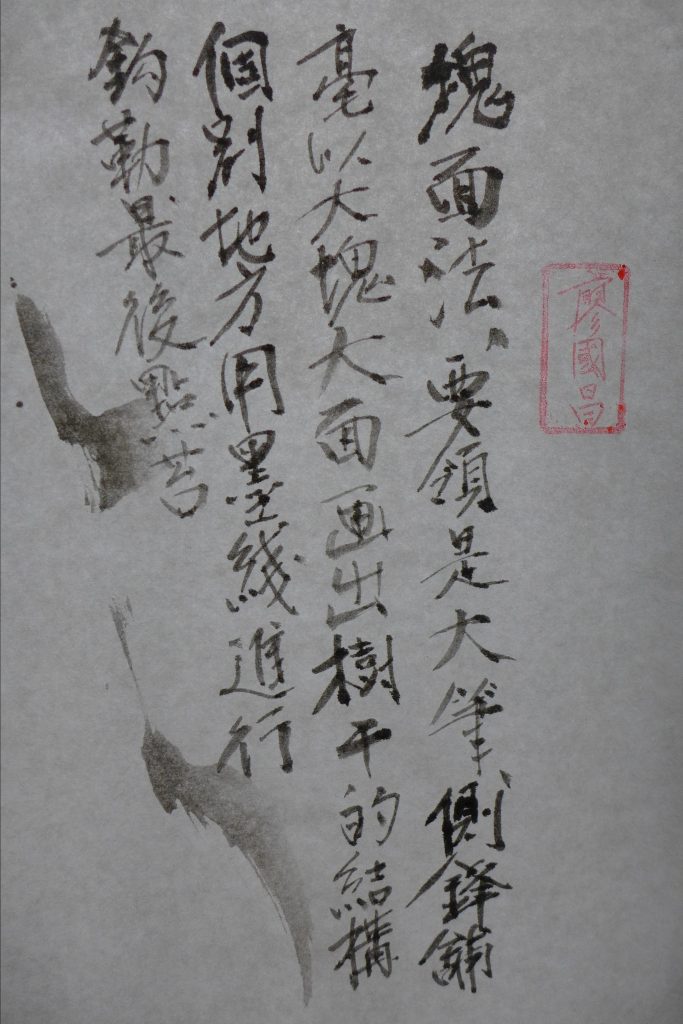 廖國昌
塊面法、要領是大筆、側鋒鋪
毫以大塊大面画出樹干的結構
個別地方用墨綫進行
鈎勒最後點苔